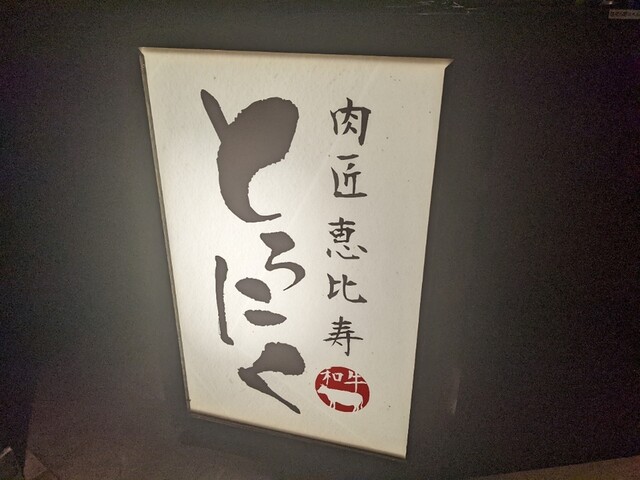 肉匠 恵比寿
とろにく
和牛